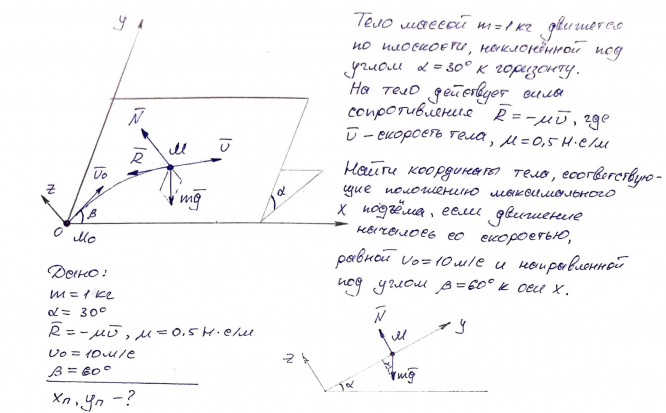 y
Тело массой m = 1 кг движется
по плоскости, наклонённой под
углом α = 30° к горизонту.
На тело действует сила
сопротивления R̄ = -μῡ, где
ῡ - скорость тела, μ = 0,5 Н·с/м
Найти координаты тела, соответствую-
щие положению максимального
подъёма, если движение
началось со скоростью,
равной υ₀ = 10 м/с и направленной
под углом β = 60° к оси x.
N̄
M
ῡ
R̄
ῡ₀
mḡ
z
α
β
O
M₀
x
Дано:
m = 1 кг
α = 30°
R̄ = -μῡ, μ = 0,5 Н·с/м
υ₀ = 10 м/с
β = 60°
xп, yп - ?
N̄
M
y
z
α
α
mḡ